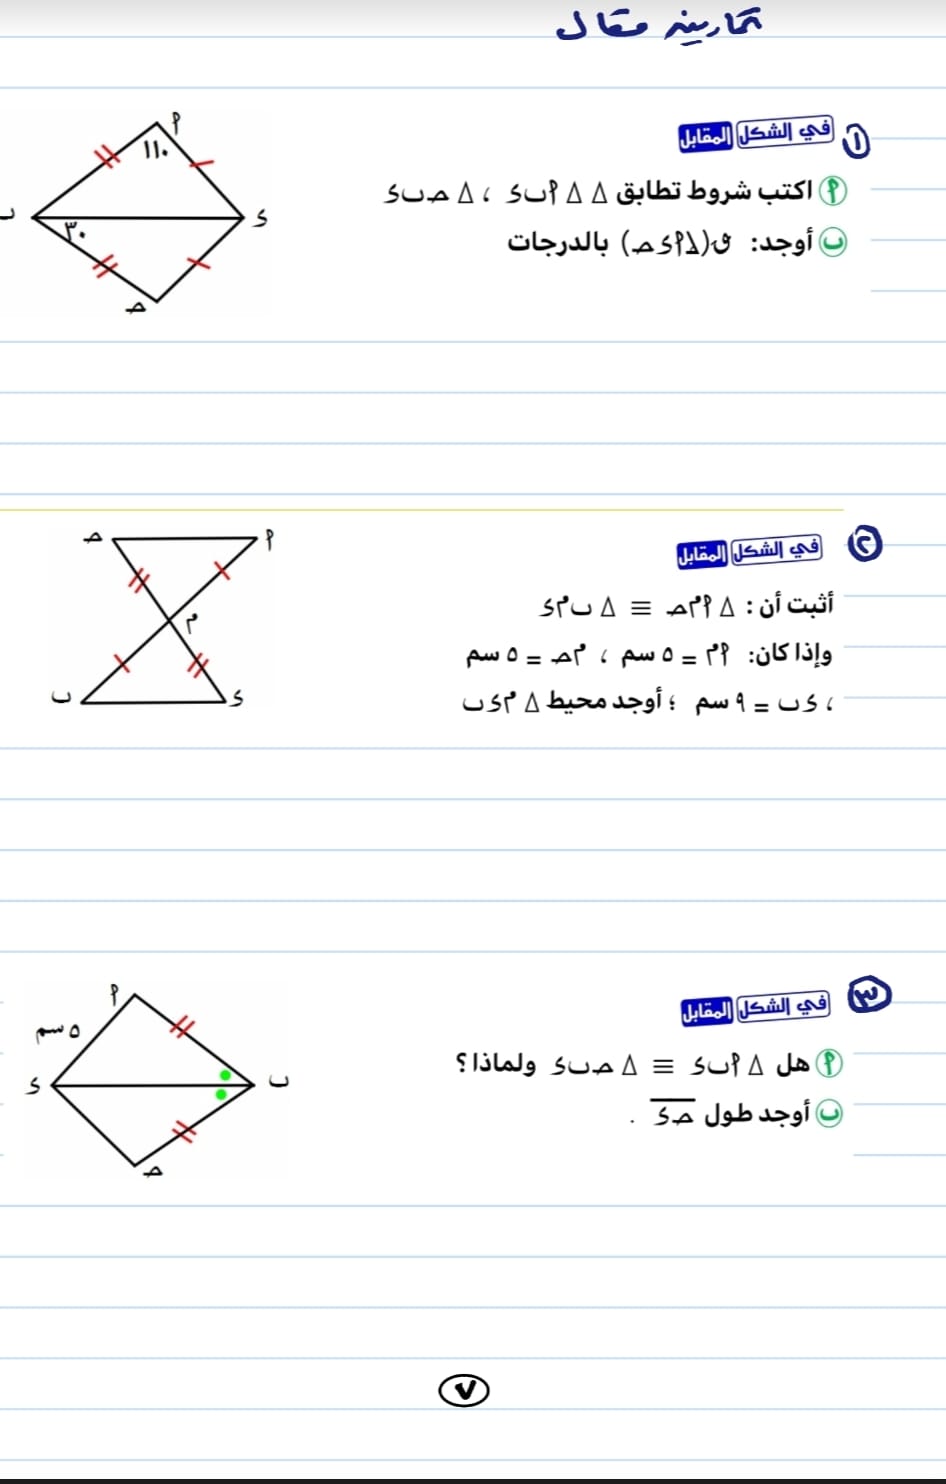 تمارين مقال
١ في الشكل المقابل
أ اكتب شروط تطابق △ △ أ ب د ، △ حـ ب د
ب أوجد: ق(∠أ د حـ) بالدرجات
أ
١١٠
د
ب
٣٠
حـ
٢ في الشكل المقابل
أثبت أن : △ أ م حـ ≡ △ ب م د
وإذا كان: أ م = ٥ سم ، م حـ = ٥ سم
، د ب = ٩ سم ؛ أوجد محيط △ م د ب
حـ
أ
م
ب
د
٣ في الشكل المقابل
أ هل △ أ ب د ≡ △ حـ ب د ولماذا ؟
ب أوجد طول حـ د .
أ
٥ سم
د
ب
حـ
٧